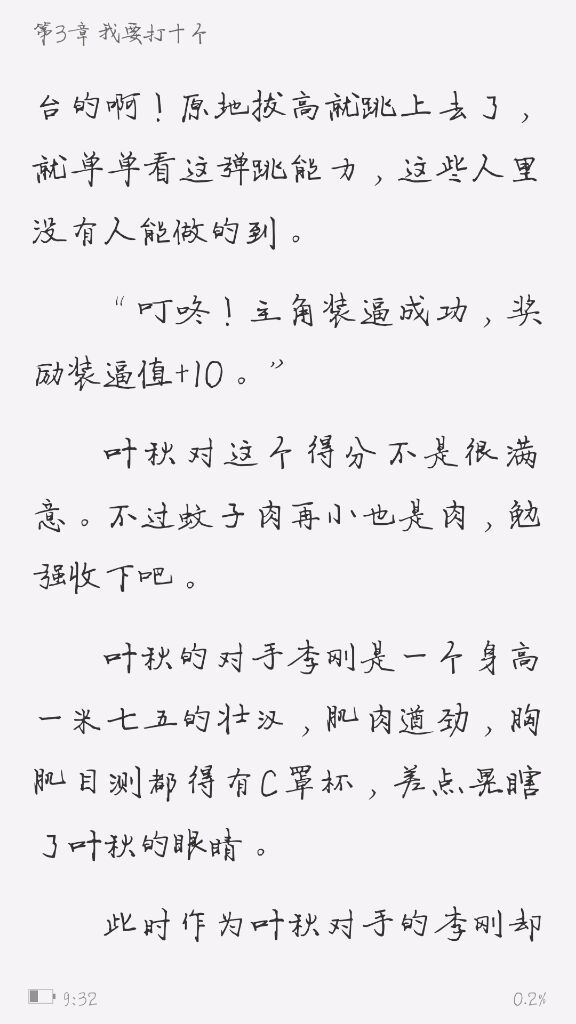 第3章 我要打十个
台的啊！原地拔高就跳上去了，
就单单看这弹跳能力，这些人里
没有人能做的到。
“叮咚！主角装逼成功，奖
励装逼值+10。”
叶秋对这个得分不是很满
意。不过蚊子肉再小也是肉，勉
强收下吧。
叶秋的对手李刚是一个身高
一米七五的壮汉，肌肉遒劲，胸
肌目测都得有C罩杯，差点晃瞎
了叶秋的眼睛。
此时作为叶秋对手的李刚却
9:32
0.2%